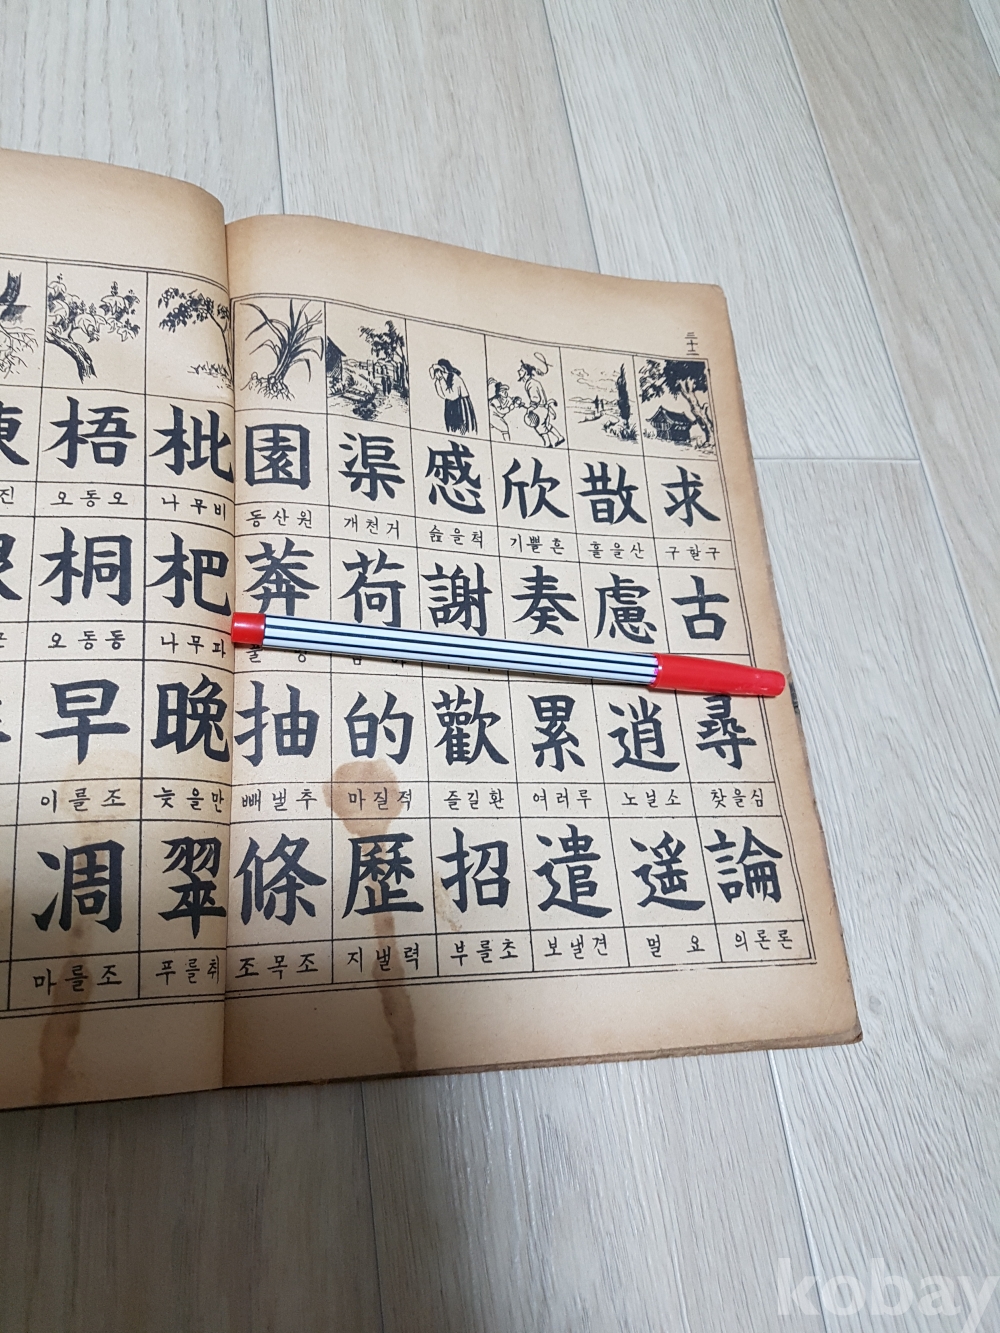 三十二
求
구할구
古
尋
찾을심
論
의론론
散
흘을산
慮
逍
노닐소
遙
멀 요
欣
기쁠흔
奏
累
여러루
遣
보낼견
慼
슲을척
謝
歡
즐길환
招
부를초
渠
개천거
荷
的
마질적
歷
지낼력
園
동산원
莽
抽
빼낼추
條
조목조
枇
나무비
杷
나무파
晩
늦을만
翠
푸를취
梧
오동오
桐
오동동
早
이를조
凋
마를조
진
kobay